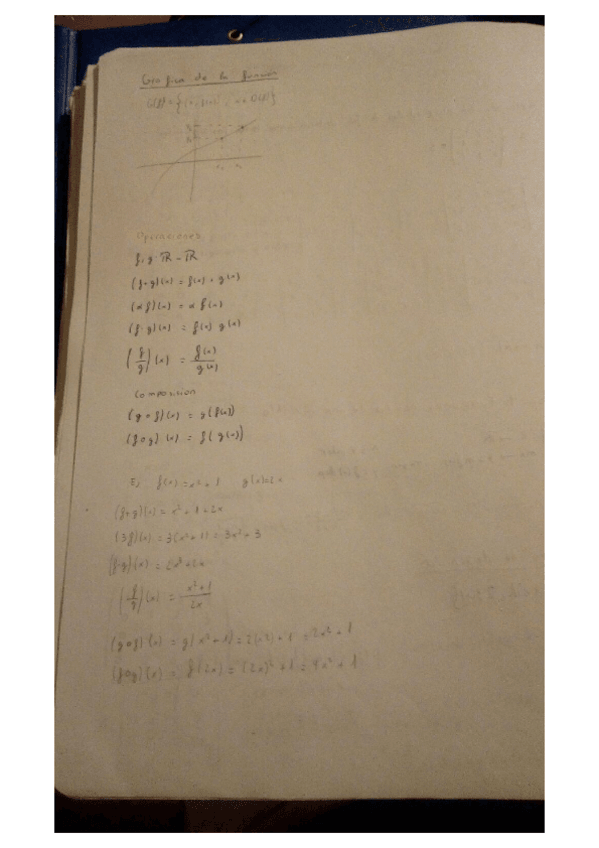 Gráfica de la función
G(f) = {(x, f(x)) , x ∈ D(f)}
Operaciones
f, g: ℝ → ℝ
(f+g)(x) = f(x) + g(x)
(α f)(x) = α f(x)
(f·g)(x) = f(x) g(x)
(f/g)(x) = f(x)/g(x)
Composición
(g∘f)(x) = g(f(x))
(f∘g)(x) = f(g(x))
Ej f(x) = x²+1 g(x)=2x
(f+g)(x) = x²+1+2x
(3f)(x) = 3(x²+1) = 3x²+3
(f·g)(x) = 2x³+2x
(f/g)(x) = x²+1/2x
(g∘f)(x) = g(x²+1) = 2(x²)+1 = 2x²+1
(f∘g)(x) = f(2x) = (2x)²+1 = 4x²+1